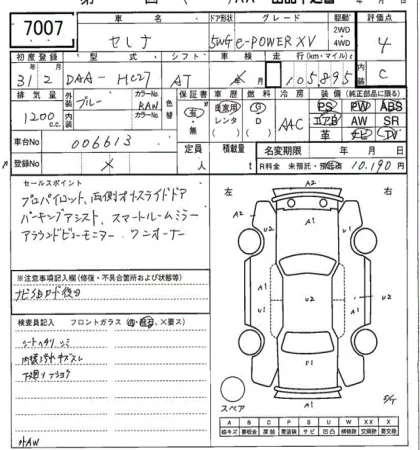 7007
車名 ドア形状 グレード 駆動 評価点
セレナ 5WG e-POWER XV 2WD 4WD 4
初度登録 型式 シフト 車検 走行(km・マイル) 内装
31 2 DAA-HC27 AT 105,895 C
排気量 外装 カラーNo. 色替 保証書 車歴 燃料 冷房 装備 (純正部品に限る)
1200 c.c. ブルー RAW 有 無 自家用 レンタ G D AAC PS PW ABS
エアB AW SR
革 ナビ TV
車台No 006613
登録No × 定員 人 積載量 名変期限 年 月 日
R料金 未預託・預託済 10,190円
セールスポイント
プロパイロット、両側オートスライドドア
パーキングアシスト、スマートルームミラー
アラウンドビューモニター、ワンオーナー
※注意事項記入欄(修復・不具合箇所および状態等)
検査員記入 フロントガラス
シートヘタリ シミ
外AW
左 右
A2
A2 U2
A1
U1 U2 A2
A1 U1
A1
スペア
A B C P S U W X XX